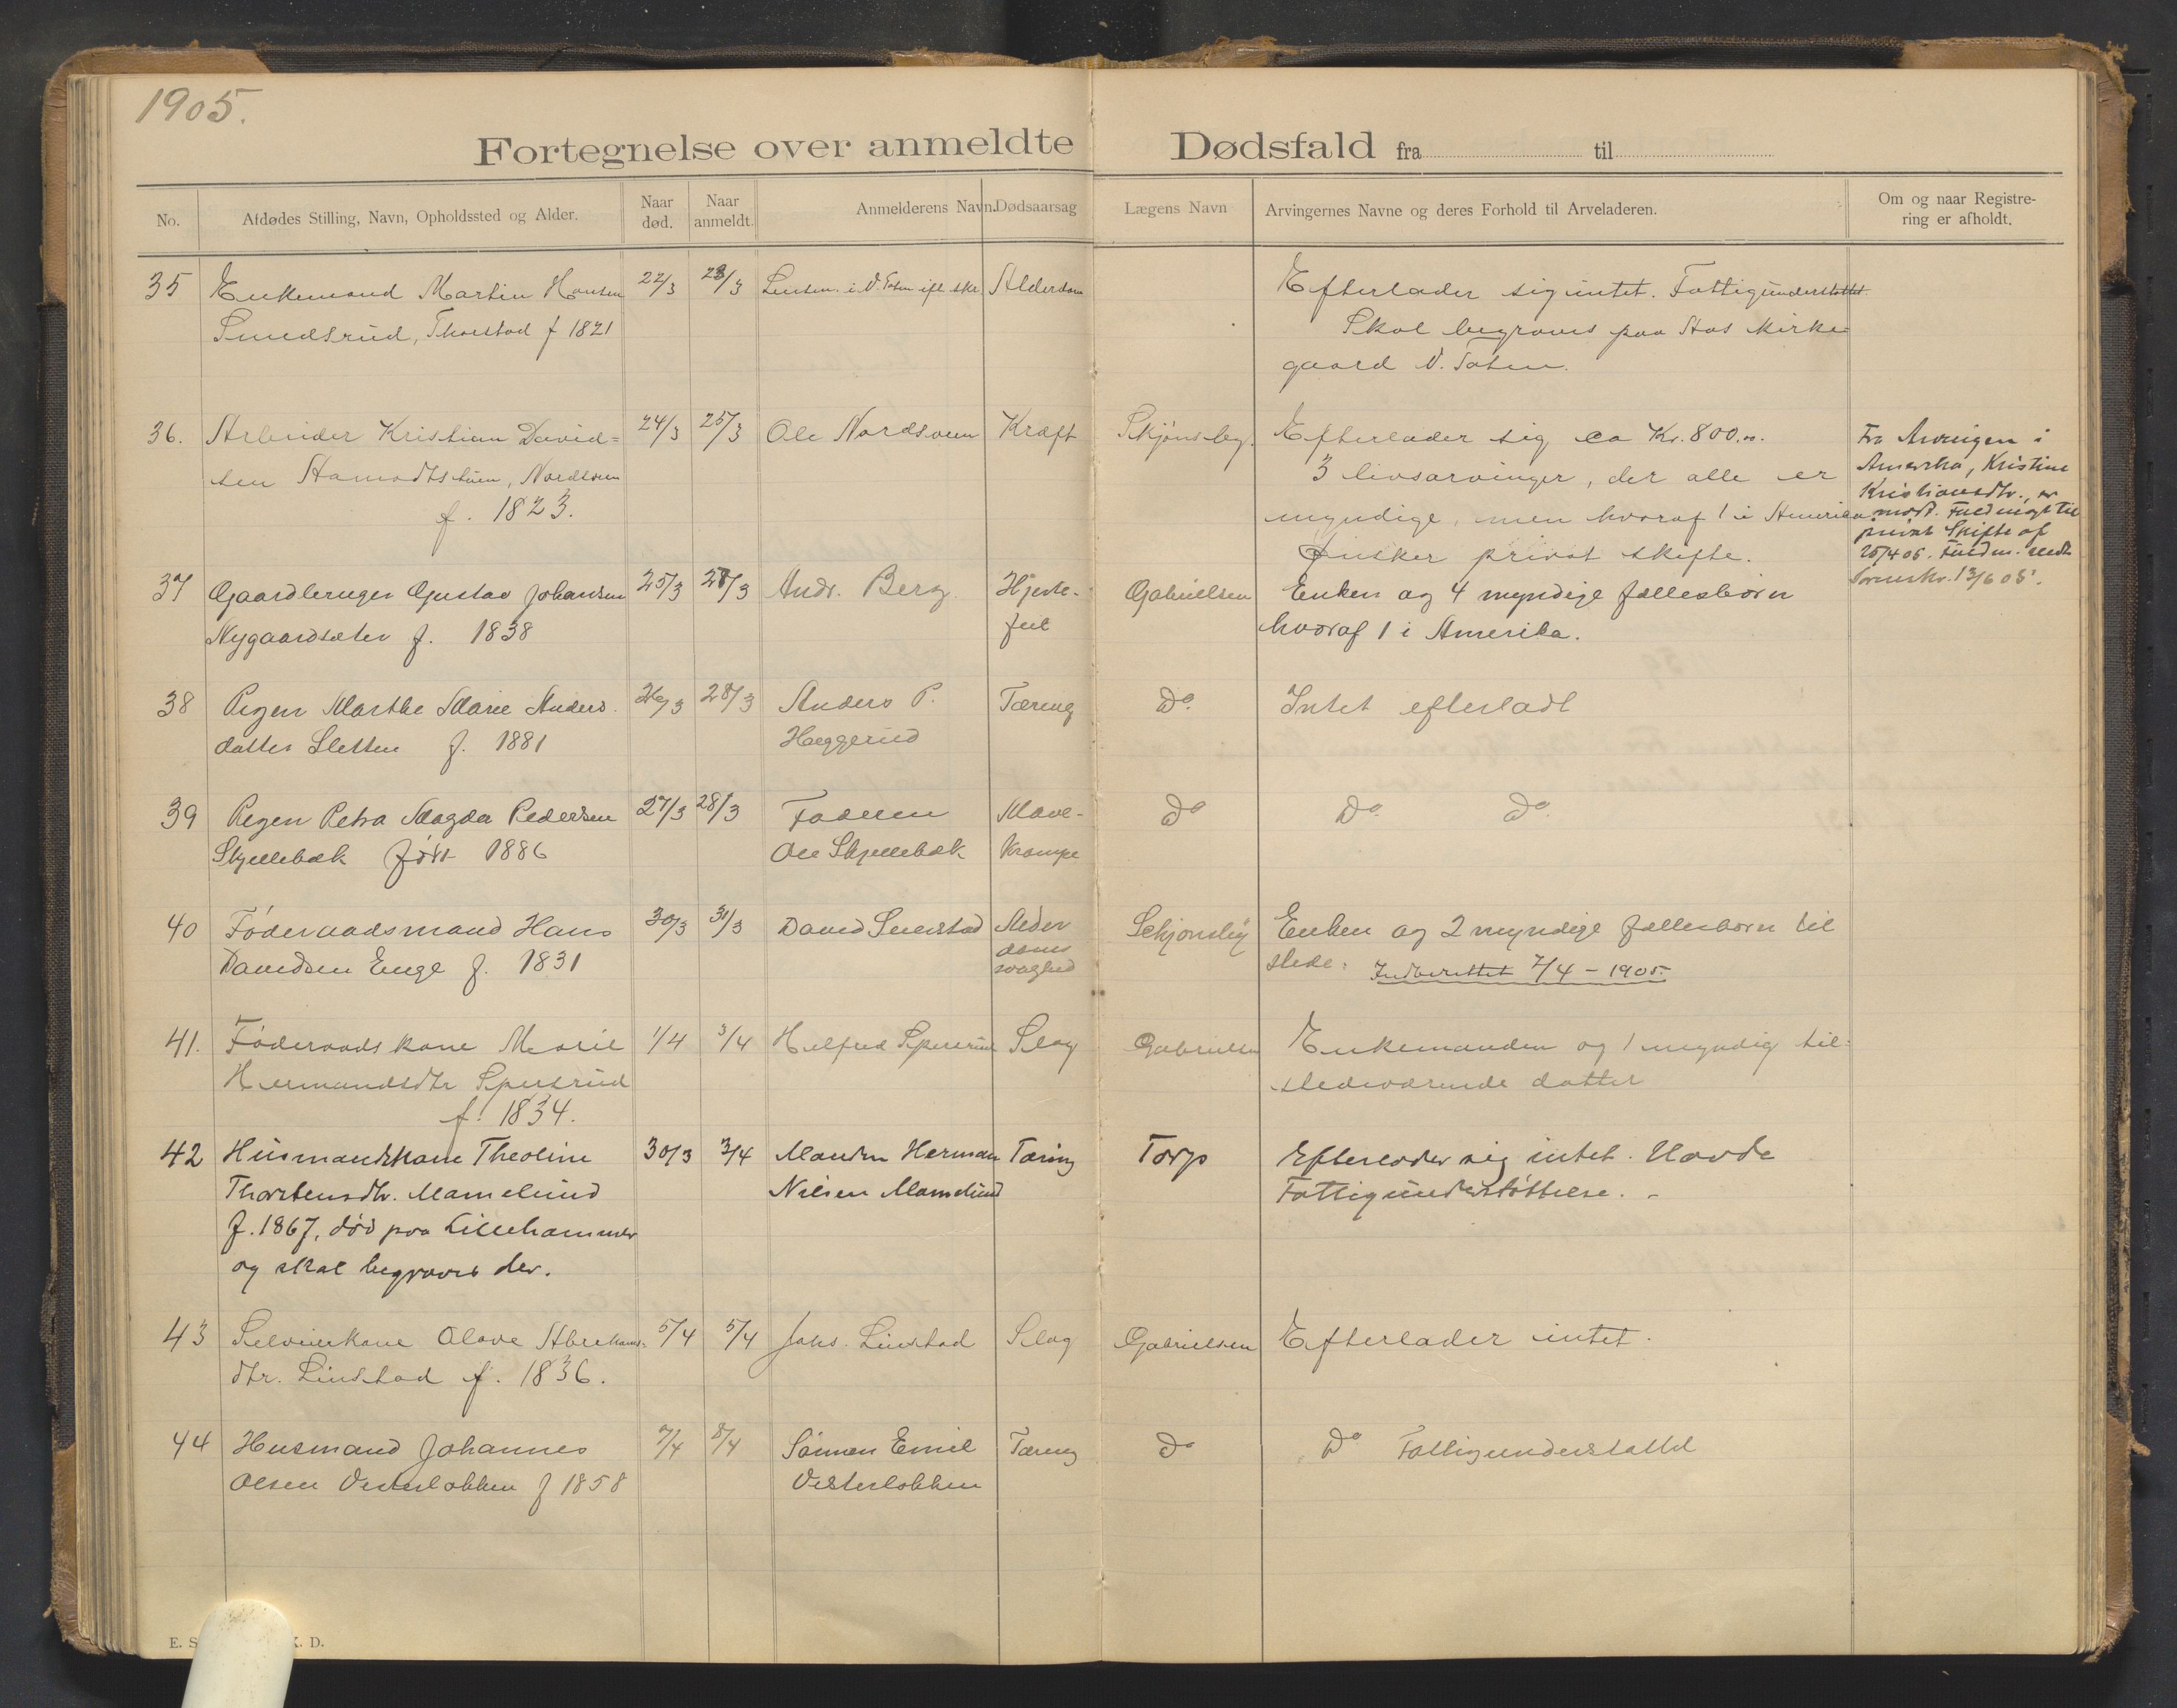 1905.
Fortegnelse over anmeldte Dødsfald fra til
No. Afdødes Stilling, Navn, Opholdssted og Alder. Naar død. Naar anmeldt. Anmelderens Navn. Dødsaarsag Lægens Navn Arvingernes Navne og deres Forhold til Arveladeren. Om og naar Registre-
ring er afholdt.
35 Enkemand Martin Hansen 22/3 23/3 Lensm. i V. Toten ifl. skr. Alderdom Efterlader sig intet. Fattigunderstøttet.
Smedsrud, Thorstad f 1821 Skal begraves paa Aas kirke-
gaard V. Toten.
36. Arbeider Kristian David= 24/3 25/3 Ole Nordsveen Kræft Skjønsbeg. Efterlader sig ca Kr. 800.00.
sen Hamodtstuen, Nordsveen 3 livsarvinger, der alle er
f. 1823. myndige, men hvoraf 1 i Amerika
Ønsker privat skifte.
Fra Arvingen i
Amerika, Kristine
Kristiansdtr., er
modt. Fuldmagt til
privat Skifte af
25/4 05. Fuldm. sendt
Sorenskr. 13/6 05.
37 Gaardbruger Gustav Johansen 25/3 28/3 Andr. Berg. Hjerte- Gabrielsen Enken og 4 myndige fællesbørn
Nygaardsæter f. 1838 feil hvoraf 1 i Amerika.
38 Pigen Marthe Marie Anders. 26/3 28/3 Anders P. Tæring Do. Intet efterladt
datter Sletten f. 1881 Haggerud
39 Pigen Petra Magda Pedersen 27/3 28/3 Faderen Mave- Do Do. Do.
Skjellebæk født 1886 Ole Skjellebæk Krampe
40 Føderaadsmand Hans 30/3 31/3 David Seierstad Alder Schjønsby Enken og 2 myndige fællesbørn til
Davidsen Enge f. 1831 doms svaghed stede: Indberettet 7/4 - 1905.
41. Føderaadskone Marie 1/4 3/4 Helfred Spersrud Slag Gabrielsen Enkemanden og 1 myndig til-
Hermandsdtr Spersrud stedeværende datter
f. 1834.
42 Husmandskone Theoline 30/3 3/4 Manden Herman Tæring Torp Efterlader sig intet. Havde
Thorstensdtr. Mamelund Nilsen Mamelund Fattigunderstøttelse. -
f. 1867, død paa Lillehammer
og skal begraves der.
43 Selveierkone Olave Abrehams- 5/4 5/4 Johs. Linstad Slag Gabrielsen Efterlader intet.
dtr. Linstad f. 1836.
44 Husmand Johannes 7/4 8/4 Sønnen Emil Tæring Do Do Fattigunderstøttet
Olsen Vesterløkken f 1858 Vesterløkken